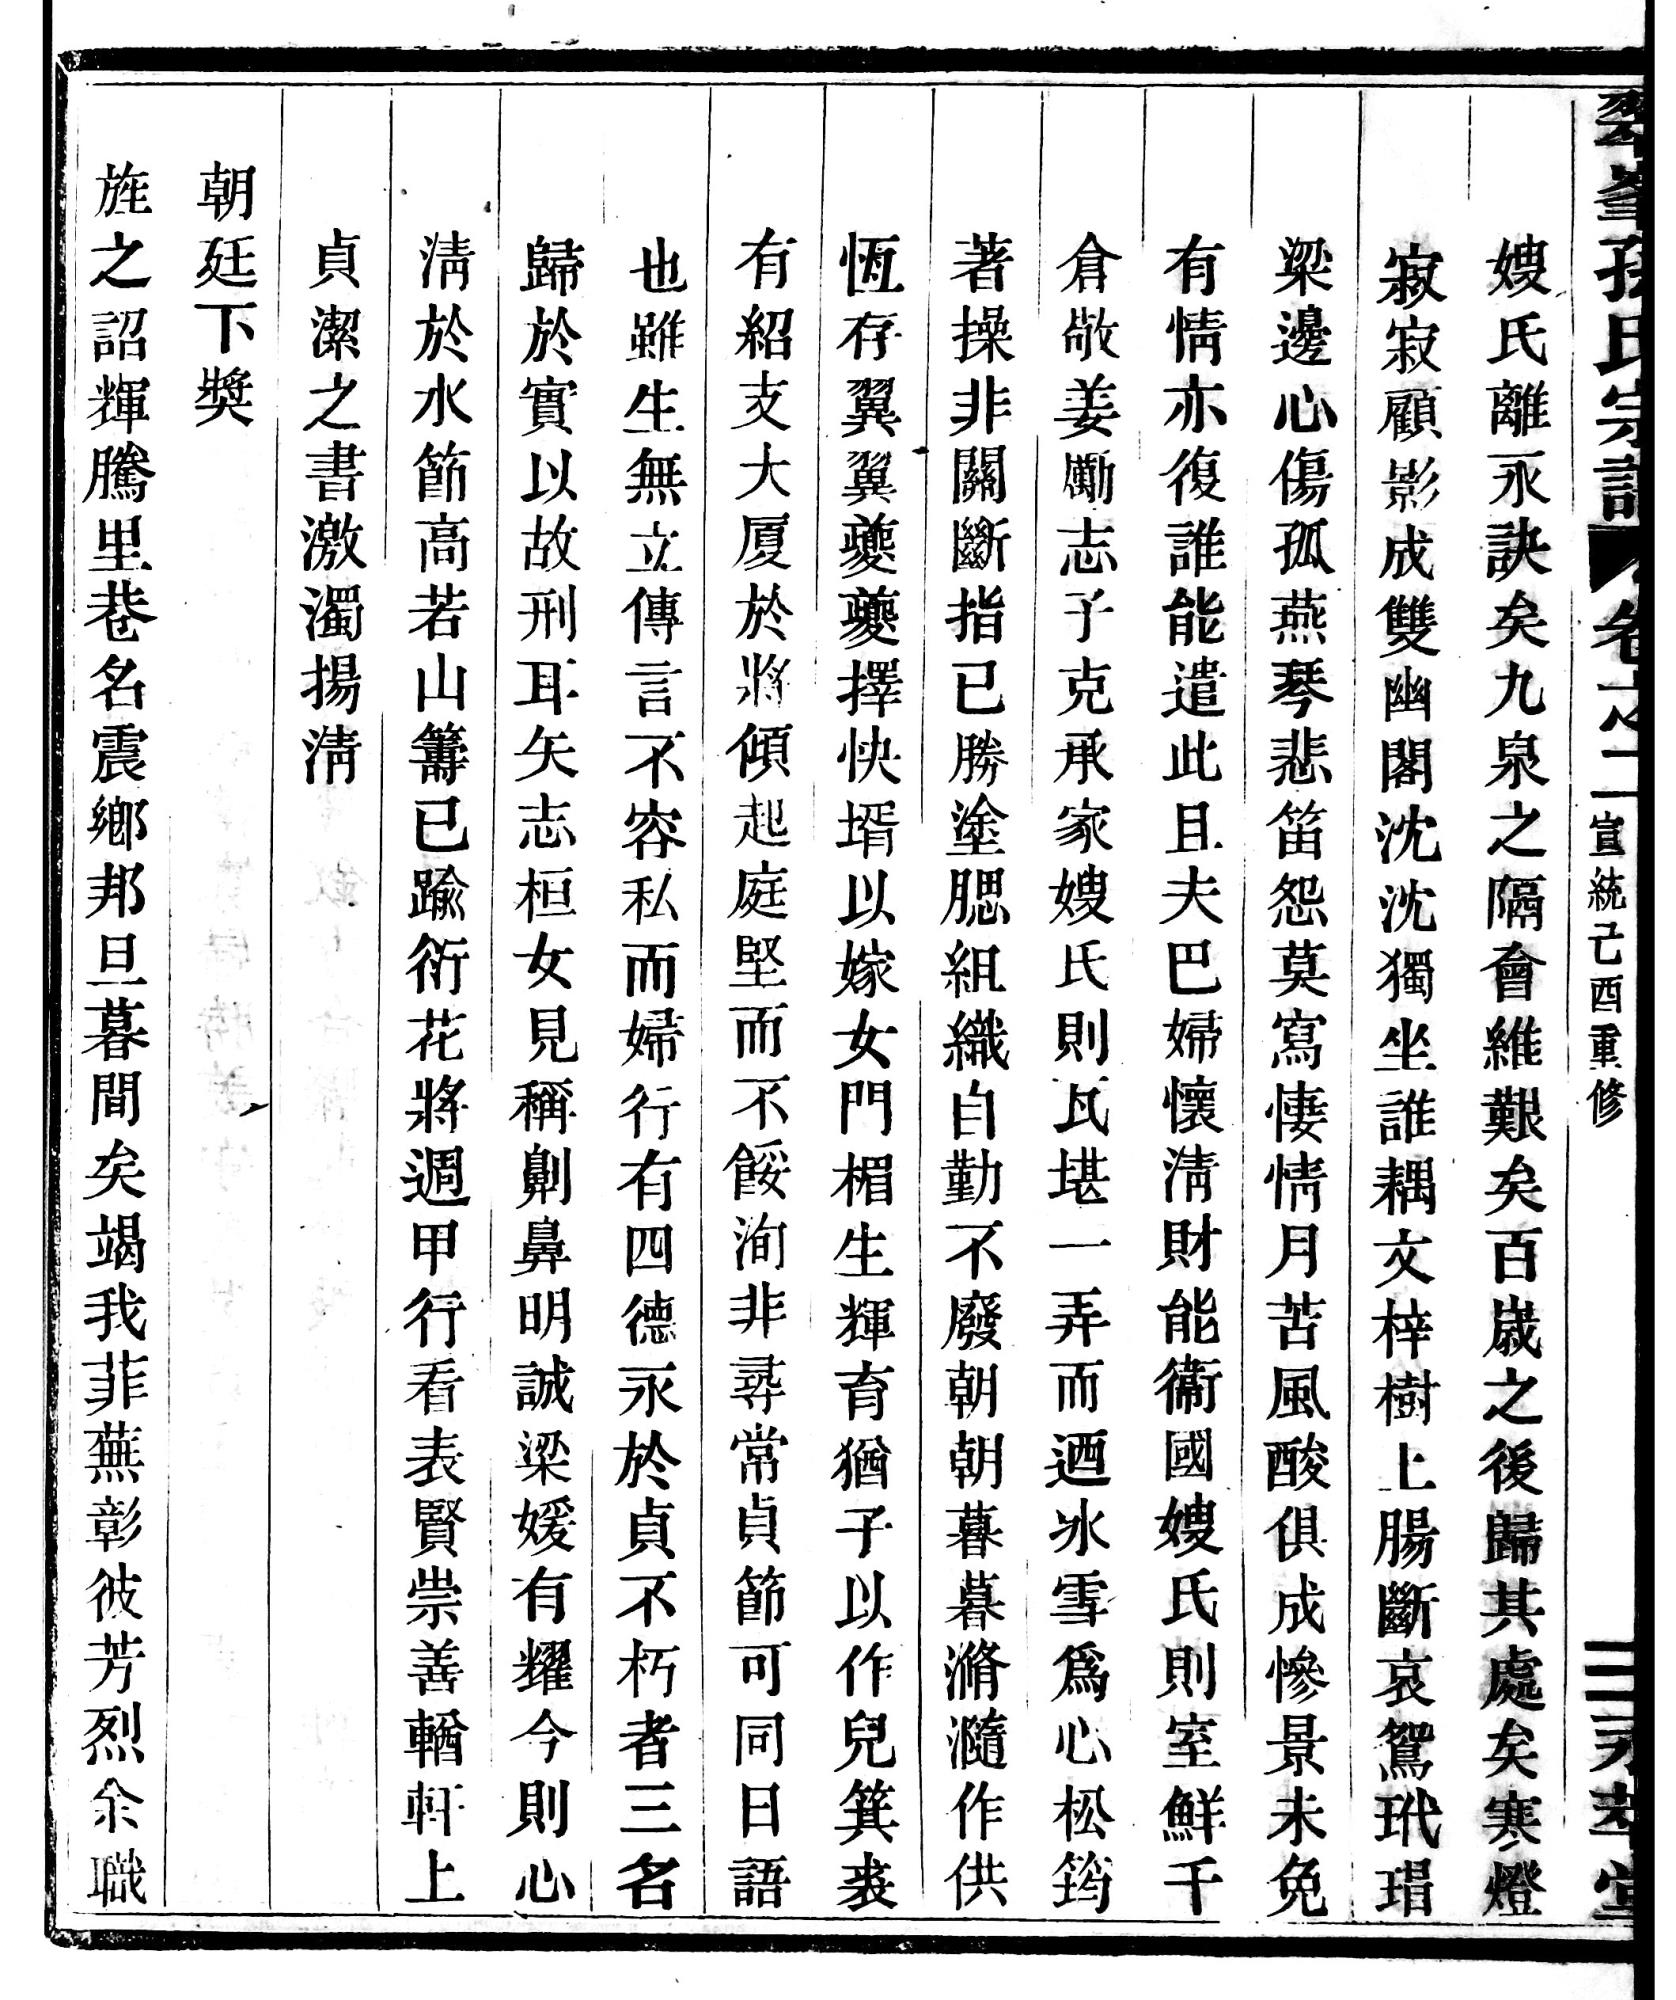 翠峯孫氏宗譜 卷之二 宣統己酉重修 永萃堂
嫂氏離永訣矣九泉之隔會維艱矣百歲之後歸其處矣寒燈
寂寂顧影成雙幽閣沈沈獨坐誰耦文梓樹上腸斷哀鴛玳瑁
梁邊心傷孤燕琴悲笛怨莫寫悽情月苦風酸俱成慘景未免
有情亦復誰能遣此且夫巴婦懷淸財能衞國嫂氏則室鮮千
倉敬姜勵志子克承家嫂氏則瓦堪一弄而迺冰雪爲心松筠
著操非關斷指已勝塗腮組織自勤不廢朝朝暮暮滫瀡作供
恆存翼翼夔夔擇快壻以嫁女門楣生輝育猶子以作兒箕裘
有紹支大厦於將傾起庭堅而不餒洵非尋常貞節可同日語
也雖生無立傳言不容私而婦行有四德永於貞不朽者三名
歸於實以故刑耳矢志桓女見稱劓鼻明誠梁媛有耀今則心
淸於水節高若山籌已踰衍花將週甲行看表賢崇善輶軒上
貞潔之書激濁揚淸
朝廷下獎
旌之詔輝騰里巷名震鄉邦旦暮間矣竭我菲蕪彰彼芳烈余職